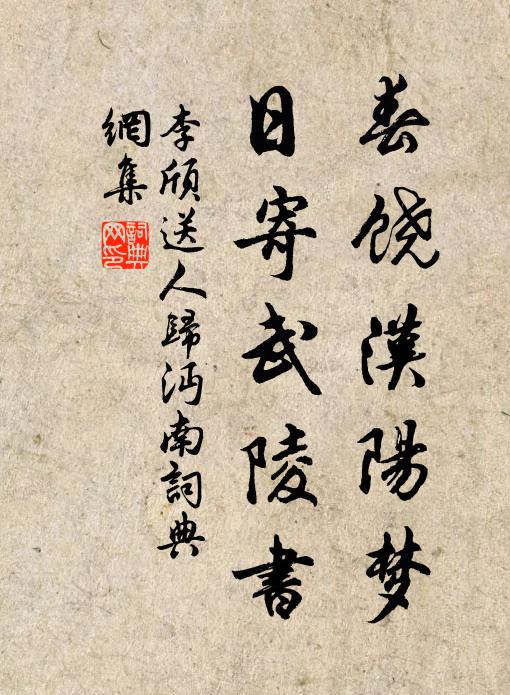 春饶漢陽梦
日寄武陵書
李頎送人歸沔南詞典
網集
詞典
网印